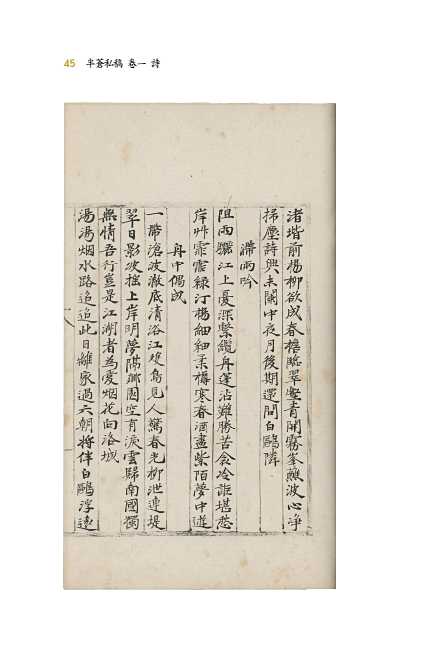 45 半蒼私稿 卷一 詩
渚堦前楊柳欲成春檐臨翠壑青開霧峯蘸波心淨
掃塵詩興未闌中夜月後期還問白鷗隣
滯雨吟
阻雨驪江上憂深繫纜舟蓬沾難勝苦衾冷詎堪愁
岸艸霏霏綠汀楊細細柔構寒春酒盡紫陌夢中遊
舟中偶成
一帶滄波澈底清浴江雙鳥見人驚春光柳泄連堤
翠日影波搖上岸明夢隔鄉園空有淚雲歸南國獨
無情吾行豈是江湖者為愛烟花向洛城
湯湯烟水路迢迢此日離家過六朝將伴白鷗浮遠